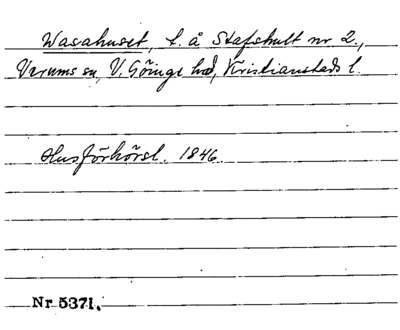 Wasahuset, t. å Stafshult nr 2.,
Verums sn, V. Göinge hd, Kristianstads l.
Husförhörsl. 1846.
Nr 5371.